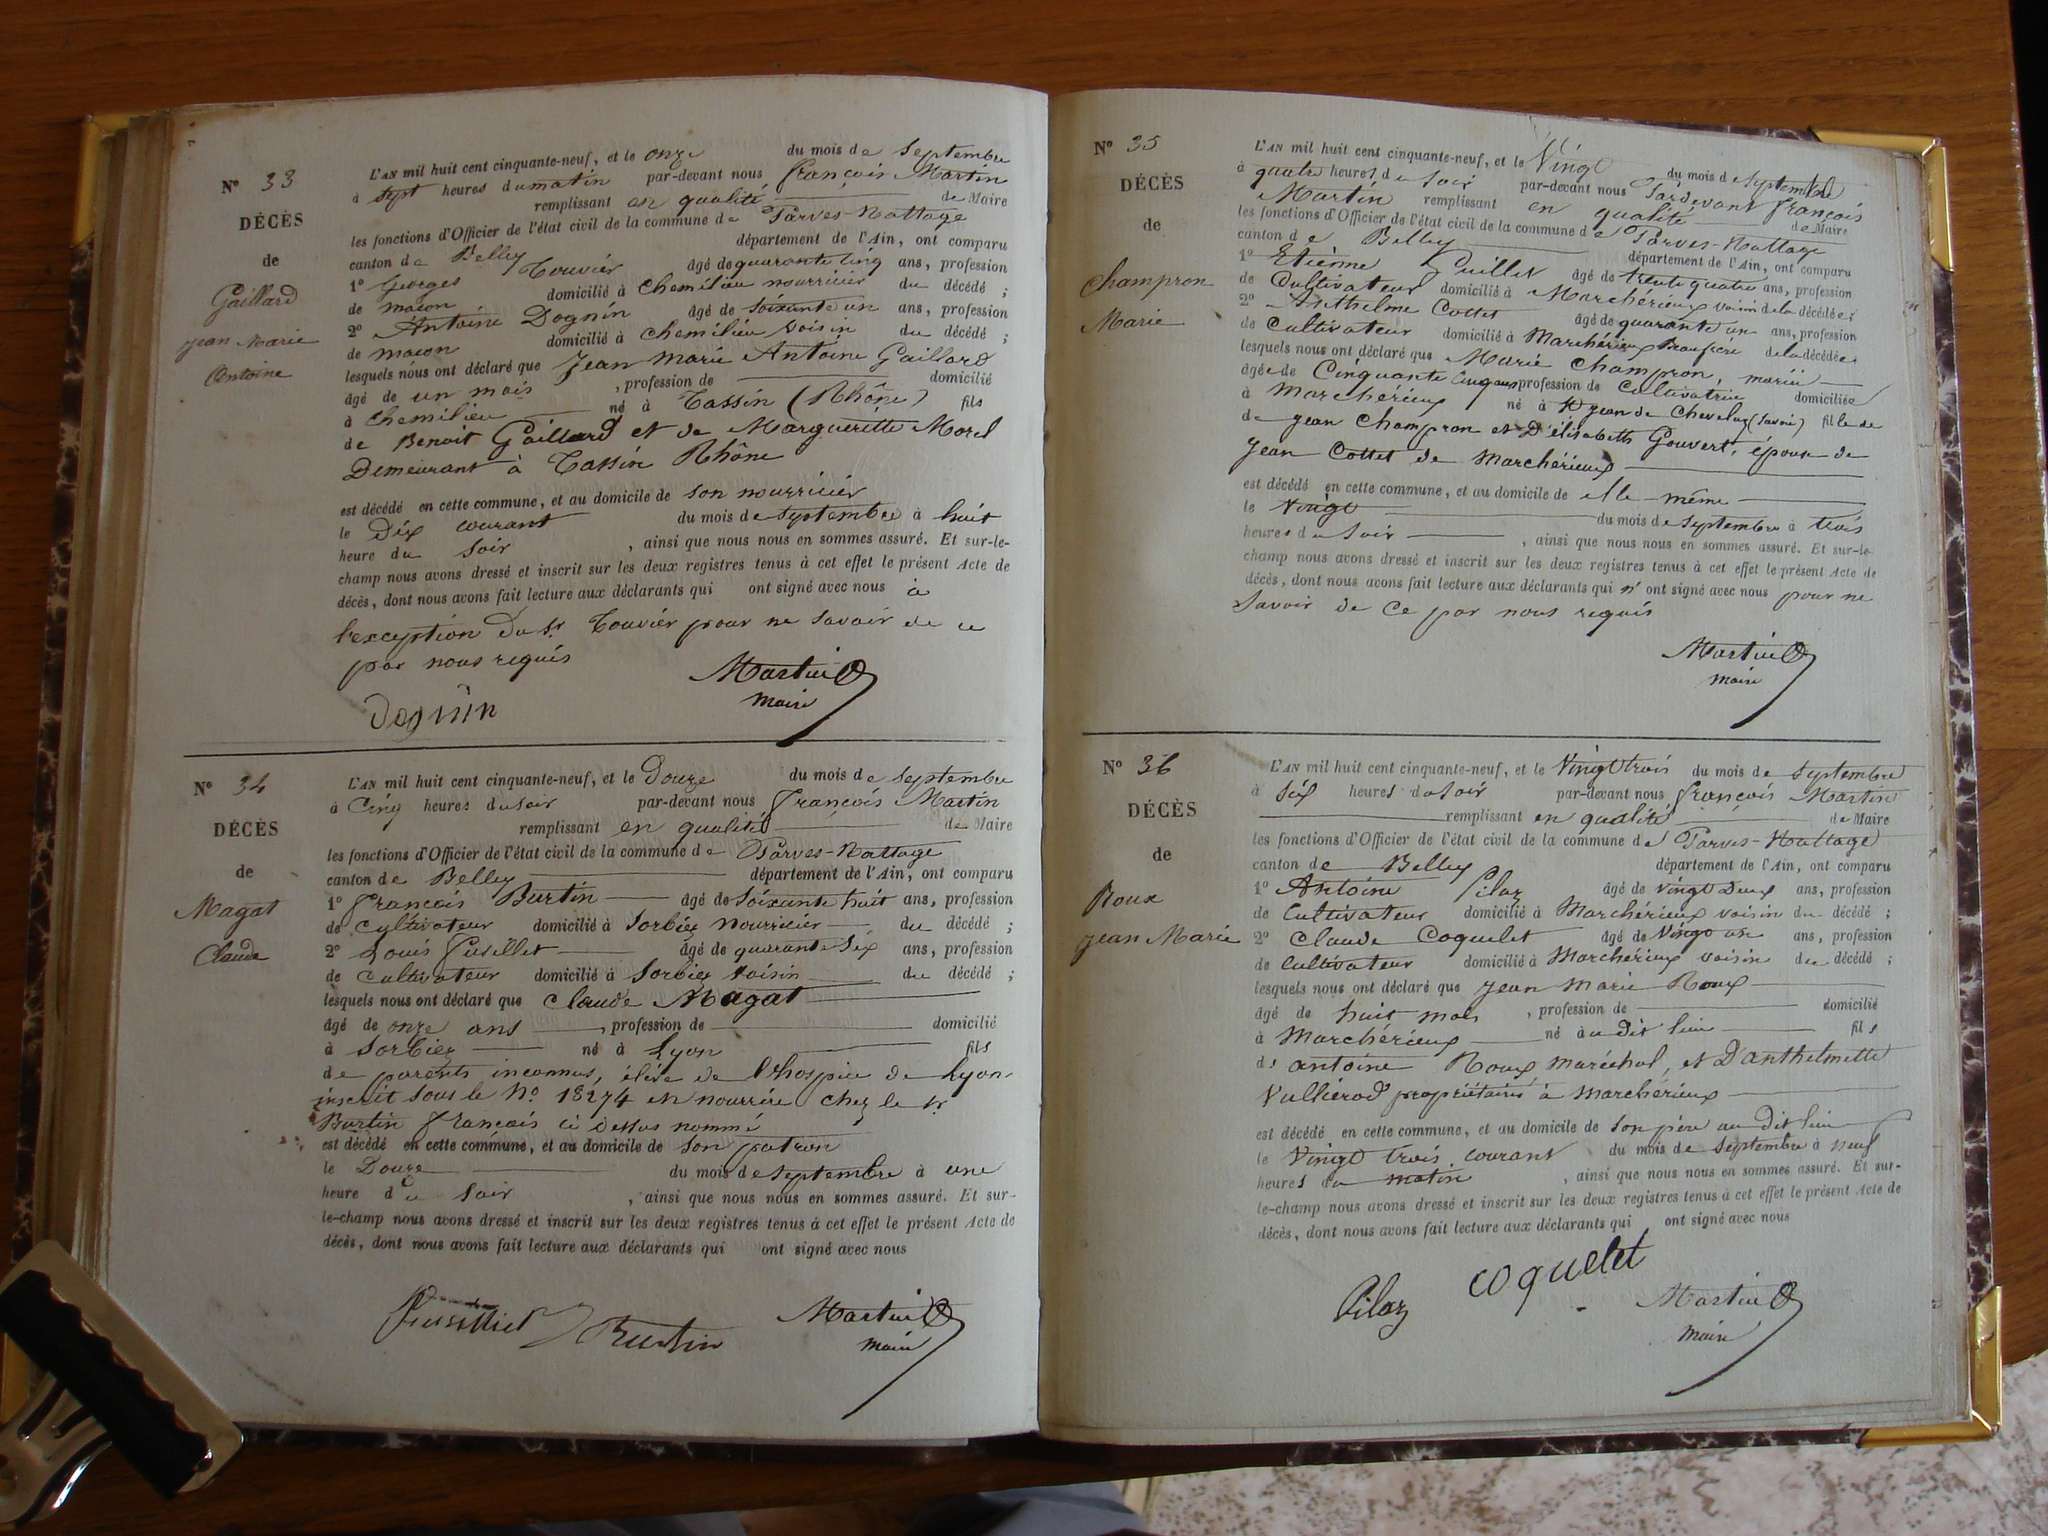 N° 33
DÉCÈS
de
Gaillard
Jean Marie
Antoine
L'AN mil huit cent cinquante-neuf, et le onze du mois de Septembre
à sept heures du matin par-devant nous françois Martin
remplissant en qualité de Maire
les fonctions d'Officier de l'état civil de la commune de Parves-Nattage
canton de Belley département de l'Ain, ont comparu
1° Georges Touvier âgé de quarante cinq ans, profession
de maçon domicilié à Chemilieu nourricier du décédé ;
2° Antoine Dognin âgé de soixante un ans, profession
de maçon domicilié à chemilieu voisin du décédé ;
lesquels nous ont déclaré que Jean Marie Antoine Gaillard
âgé de un mois , profession de domicilié
à chemilieu né à Tassin (Rhône) fils
de Benoit Gaillard et de Marguerite Morel
Demeurant à Tassin Rhône
est décédé en cette commune, et au domicile de son nourricier
le Dix courant du mois de septembre à huit
heure du soir , ainsi que nous nous en sommes assuré. Et sur-le-
champ nous avons dressé et inscrit sur les deux registres tenus à cet effet le présent Acte de
décès, dont nous avons fait lecture aux déclarants qui ont signé avec nous à
l'exception du Sr Touvier pour ne savoir de ce
par nous requis
Martin
maire
Dognin
N° 34
DÉCÈS
de
Magat
Claude
L'AN mil huit cent cinquante-neuf, et le Douze du mois de Septembre
à Cinq heures du soir par-devant nous françois Martin
remplissant en qualité de Maire
les fonctions d'Officier de l'état civil de la commune de Parves-Nattage
canton de Belley département de l'Ain, ont comparu
1° francois Burtin âgé de soixante huit ans, profession
de cultivateur domicilié à Sorbier nourricier du décédé ;
2° Louis Pusillet âgé de quarante six ans, profession
de cultivateur domicilié à Sorbier voisin du décédé ;
lesquels nous ont déclaré que Claude Magat
âgé de onze ans , profession de domicilié
à Sorbier né à Lyon fils
de parents inconnus, élève de l'hospice de Lyon
inscrit sous le N° 18274 en nourrice chez le Sr
Burtin francois ci dessus nommé
est décédé en cette commune, et au domicile de son patron
le Douze du mois de septembre à une
heure du soir , ainsi que nous nous en sommes assuré. Et sur-
le-champ nous avons dressé et inscrit sur les deux registres tenus à cet effet le présent Acte de
décès, dont nous avons fait lecture aux déclarants qui ont signé avec nous
Pusillet Burtin Martin
maire
N° 35
DÉCÈS
de
Champron
Marie
L'AN mil huit cent cinquante-neuf, et le Vingt du mois de septembre
à quatre heures du soir par-devant nous Pardevant françois
Martin remplissant en qualité de Maire
les fonctions d'Officier de l'état civil de la commune de Parves-Nattage
canton de Belley département de l'Ain, ont comparu
1° Etienne Puillet âgé de trente quatre ans, profession
de Cultivateur domicilié à Marchérieux voisin de la décédée ;
2° Anthelme Cottet âgé de quarante un ans, profession
de cultivateur domicilié à Marchérieux Beaufrère de la décédée
lesquels nous ont déclaré que Marie Champron, mariée
âgée de Cinquante cinq ans profession de Cultivatrice domiciliée
à Marchérieux né à St Jean de Chevelu (Savoie) fille de
de Jean Champron et D'élisabeth Gouvert, épouse de
Jean Cottet de Marchérieux
est décédé en cette commune, et au domicile de elle-même
le Vingt du mois de septembre à trois
heures du soir , ainsi que nous nous en sommes assuré. Et sur-le-
champ nous avons dressé et inscrit sur les deux registres tenus à cet effet le présent Acte de
décès, dont nous avons fait lecture aux déclarants qui n'ont signé avec nous pour ne
savoir de ce par nous requis
Martin
maire
N° 36
DÉCÈS
de
Roux
Jean Marie
L'AN mil huit cent cinquante-neuf, et le Vingt trois du mois de septembre
à six heures du soir par-devant nous françois Martin
remplissant en qualité de Maire
les fonctions d'Officier de l'état civil de la commune de Parves-Nattage
canton de Belley département de l'Ain, ont comparu
1° Antoine Pilaz âgé de vingt Deux ans, profession
de Cultivateur domicilié à Marchérieux voisin du décédé ;
2° Claude Coquelet âgé de Vingt un ans, profession
de Cultivateur domicilié à Marchérieux voisin du décédé ;
lesquels nous ont déclaré que Jean Marie Roux
âgé de huit mois , profession de domicilié
à Marchérieux né au dit lieu fils
de antoine Roux maréchal, et D'anthelmette
Vullierod propriétaires à Marchérieux
est décédé en cette commune, et au domicile de son père au dit lieu
le Vingt trois courant du mois de septembre à neuf
heures du matin , ainsi que nous nous en sommes assuré. Et sur-
le-champ nous avons dressé et inscrit sur les deux registres tenus à cet effet le présent Acte de
décès, dont nous avons fait lecture aux déclarants qui ont signé avec nous
Pilaz coquelet Martin
maire